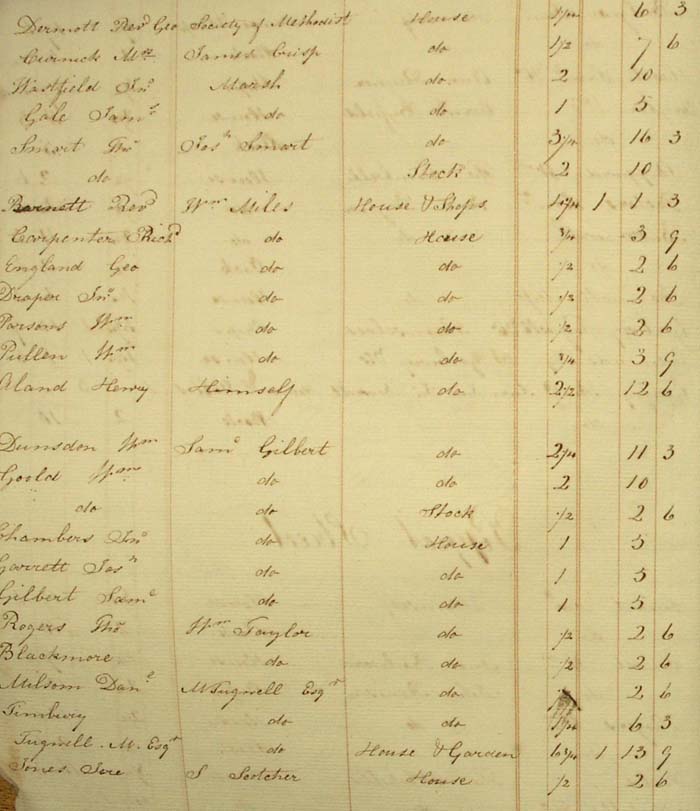 Dermott Revd Geo Society of Methodist House 1 1/4 6 3
Curnick Mrs James Crisp do 1 1/2 7 6
Wastfield Jno Marsh do 2 10
Gale Saml do do 1 5
Smart Thos Josh Smart do 3 1/4 16 3
do Stock 2 10
Barnett Revd Wm Miles House & Shops 4 1/4 1 1 3
Carpenter Richd do House 3/4 3 9
England Geo do do 1/2 2 6
Draper Jno do do 1/2 2 6
Parsons Wm do do 1/2 2 6
Pullen Wm do do 3/4 3 9
Aland Henry Himself do 2 1/2 12 6
Dunsdon Wm Saml Gilbert do 2 1/4 11 3
Gould Wm do do 2 10
do do Stock 1/2 2 6
Chambers Jno do House 1 5
Garrett Josh do do 1 5
Gilbert Saml do do 1 5
Rogers Thos Wm Taylor do 1/2 2 6
Blackmore do do 1/2 2 6
Milsom Danl M Tugwell Esqr do 2 6
Timbury do do 1 1/4 6 3
Tugwell M. Esqr do House & Garden 6 3/4 1 13 9
Jones Jere S Scotcher House 1/2 2 6